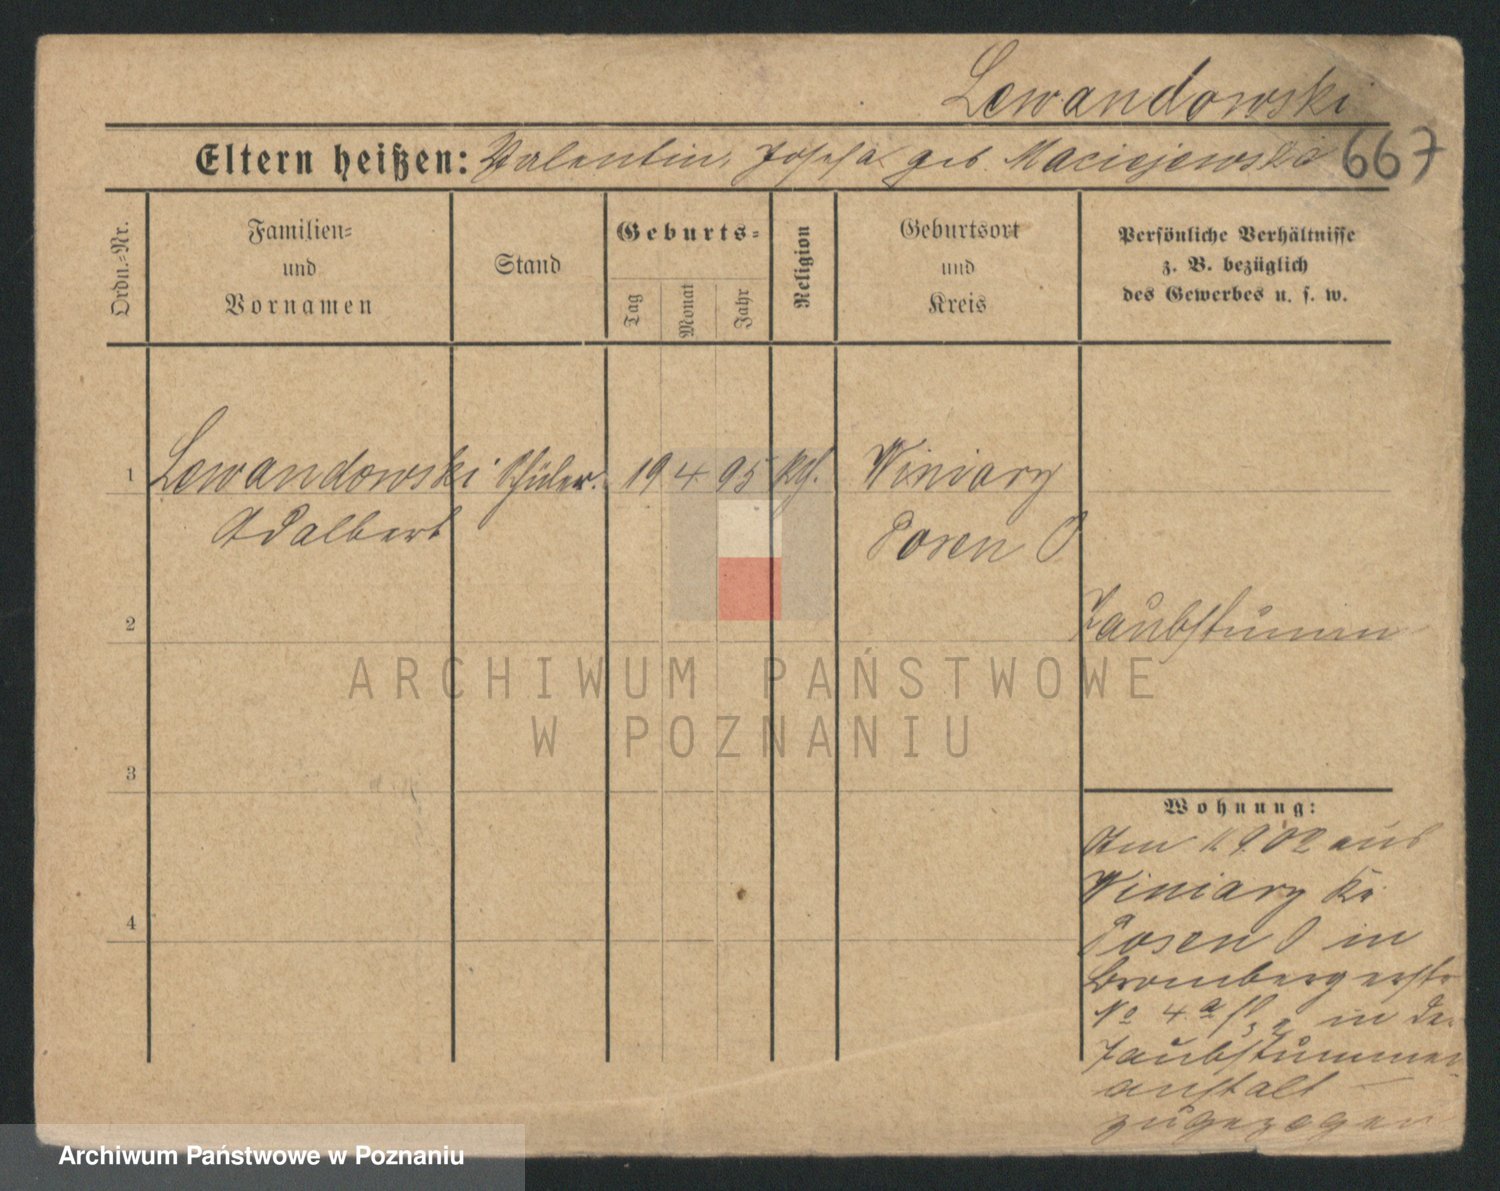 Lewandowski
Eltern heißen: Valentin, Josepha geb. Maciejewska 667
Ordn.-Nr.
Familien-
und
Vornamen
Stand
Geburts-
Tag
Monat
Jahr
Religion
Geburtsort
und
Kreis
Persönliche Verhältnisse
z. B. bezüglich
des Gewerbes u. s. w.
1 Lewandowski Schüler. 19 4 95 kth. Winiary
Adalbert Posen O
2
Taubstumm
ARCHIWUM PAŃSTWOWE
W POZNANIU
3
Wohnung:
Am 902 aus
Winiary Kr.
4
Posen O in
Brombergerstr
No 4a in der
Taubstummen
anstalt
zugezogen
Archiwum Państwowe w Poznaniu